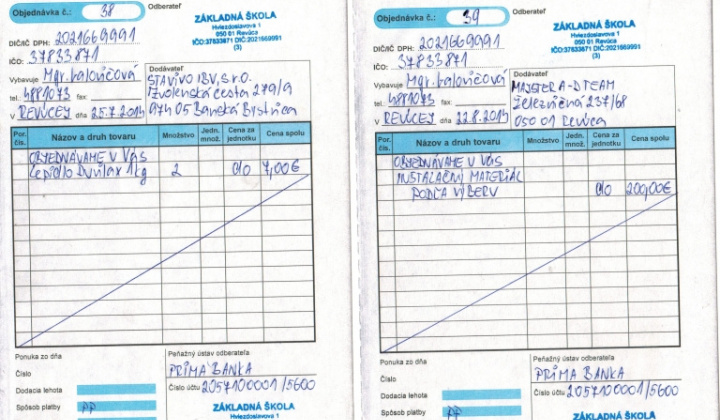 Objednávka č.: 38
Odberateľ
ZÁKLADNÁ ŠKOLA
Hviezdoslavova 1
050 01 Revúca
IČO:37833871 DIČ:2021669991
(3)
DIČ/IČ DPH: 2021669991
IČO: 37833871
Vybavuje Mgr. Halovičová
tel. 4881073 fax:
V REVÚCEJ dňa 25.7.2014
Dodávateľ
STAVIVO IBV, s.r.o.
Zvolenská cesta 279/9
974 05 Banská Bystrica
Por. čís.
Názov a druh tovaru
Množstvo
Jedn. množ.
Cena za jednotku
Cena spolu
OBJEDNÁVAME U VÁS
Lepidlo Duvilax 1kg 2 do 7,00€
Ponuka zo dňa
Číslo
Dodacia lehota
Spôsob platby PP
Peňažný ústav odberateľa
PRIMA BANKA
Číslo účtu 2057100001/5600
ZÁKLADNÁ ŠKOLA
Objednávka č.: 39
Odberateľ
ZÁKLADNÁ ŠKOLA
Hviezdoslavova 1
050 01 Revúca
IČO:37833871 DIČ:2021669991
(3)
DIČ/IČ DPH: 2021669991
IČO: 37833871
Vybavuje Mgr. Halovičová
tel. 4881073 fax:
V REVÚCEJ dňa 22.8.2014
Dodávateľ
MAJSTER A-D TEAM
Železničná 237/68
050 01 Revúca
Por. čís.
Názov a druh tovaru
Množstvo
Jedn. množ.
Cena za jednotku
Cena spolu
OBJEDNÁVAME U VÁS
INŠTALAČNÝ MATERIÁL
PODĽA VÝBERU do 200,00€
Ponuka zo dňa
Číslo
Dodacia lehota
Spôsob platby PP
Peňažný ústav odberateľa
PRIMA BANKA
Číslo účtu 2057100001/5600
ZÁKLADNÁ ŠKOLA